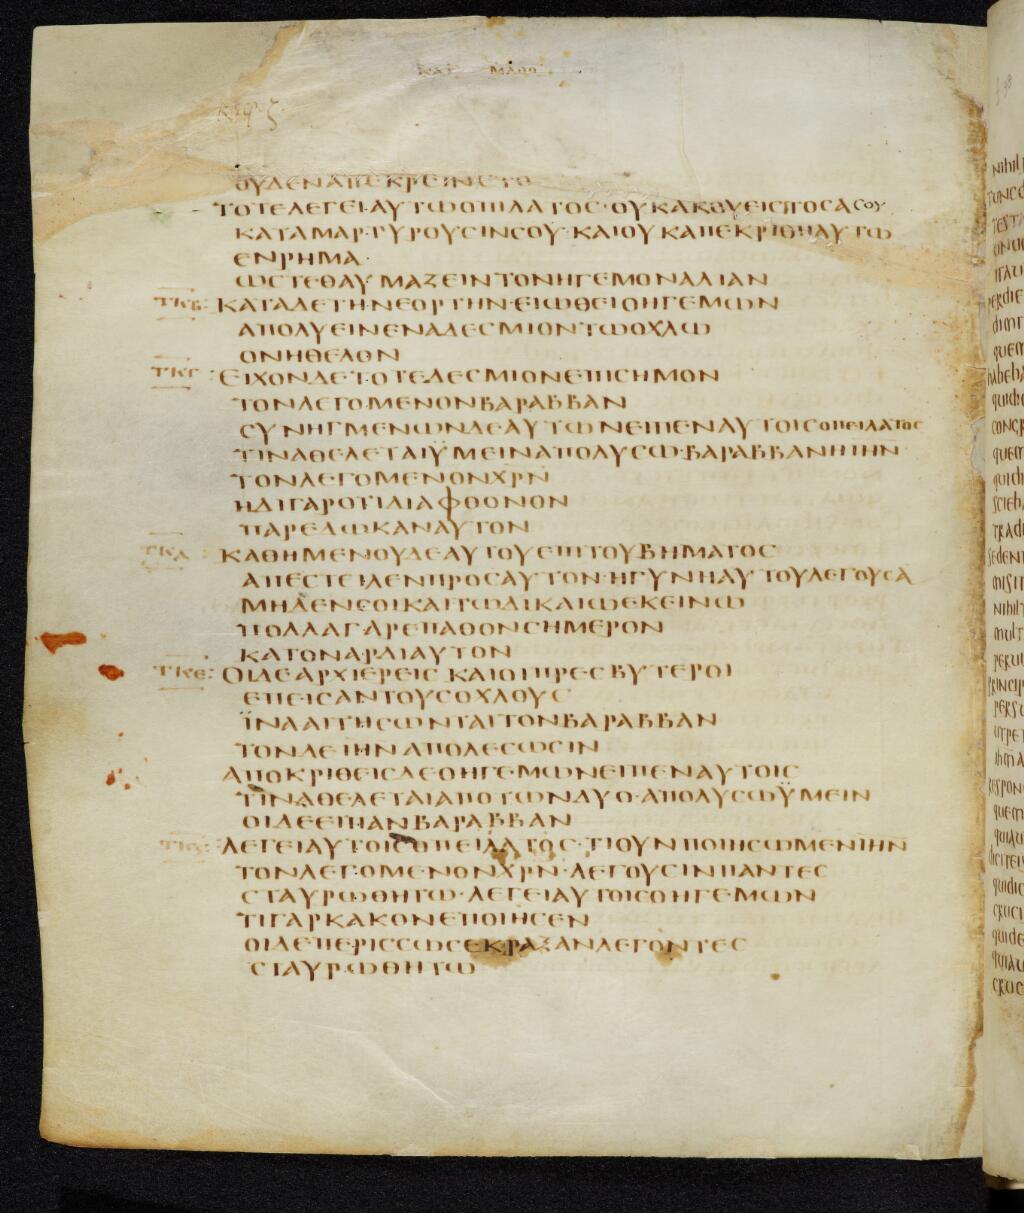 ΚΑΤ ΜΑΘΘ
κεφ. ζ.
ΟΥΔΕΝ ΑΠΕΚΡΕΙΝΕΤΟ
ΤΟΤΕ ΛΕΓΕΙ ΑΥΤΩ Ο ΠΙΛΑΤΟΣ · ΟΥΚ ΑΚΟΥΕΙΣ ΠΟΣΑ ΣΟΥ
ΚΑΤΑΜΑΡΤΥΡΟΥΣΙΝ ΣΟΥ · ΚΑΙ ΟΥΚ ΑΠΕΚΡΙΘΗ ΑΥΤΩ
ΕΝ ΡΗΜΑ ·
ΩΣΤΕ ΘΑΥΜΑΖΕΙΝ ΤΟΝ ΗΓΕΜΟΝΑ ΛΙΑΝ
ΤΚΒ: ΚΑΤΑ ΔΕ ΤΗΝ ΕΟΡΤΗΝ · ΕΙΩΘΕΙ Ο ΗΓΕΜΩΝ
ΑΠΟΛΥΕΙΝ ΕΝΑ ΔΕΣΜΙΟΝ ΤΩ ΟΧΛΩ
ΟΝ ΗΘΕΛΟΝ
ΤΚΓ: ΕΙΧΟΝ ΔΕ ΤΟΤΕ ΔΕΣΜΙΟΝ ΕΠΙΣΗΜΟΝ
ΤΟΝ ΛΕΓΟΜΕΝΟΝ ΒΑΡΑΒΒΑΝ
ΣΥΝΗΓΜΕΝΩΝ ΔΕ ΑΥΤΩΝ ΕΙΠΕΝ ΑΥΤΟΙΣ Ο ΠΕΙΛΑΤΟΣ
ΤΙΝΑ ΘΕΛΕΤΑΙ ΫΜΕΙΝ ΑΠΟΛΥΣΩ · ΒΑΡΑΒΒΑΝ Η ΙΗΝ
ΤΟΝ ΛΕΓΟΜΕΝΟΝ ΧΡΝ
ΗΔΙ ΓΑΡ ΟΤΙ ΔΙΑ ΦΘΟΝΟΝ
ΠΑΡΕΔΩΚΑΝ ΑΥΤΟΝ
ΤΚΔ: ΚΑΘΗΜΕΝΟΥ ΔΕ ΑΥΤΟΥ ΕΠΙ ΤΟΥ ΒΗΜΑΤΟΣ
ΑΠΕΣΤΕΙΛΕΝ ΠΡΟΣ ΑΥΤΟΝ · Η ΓΥΝΗ ΑΥΤΟΥ ΛΕΓΟΥΣΑ
ΜΗΔΕΝ ΣΟΙ ΚΑΙ ΤΩ ΔΙΚΑΙΩ ΕΚΕΙΝΩ
ΠΟΛΛΑ ΓΑΡ ΕΠΑΘΟΝ ΣΗΜΕΡΟΝ
ΚΑΤ ΟΝΑΡ ΔΙ ΑΥΤΟΝ
ΤΚΕ: ΟΙ ΔΕ ΑΡΧΙΕΡΕΙΣ ΚΑΙ ΟΙ ΠΡΕΣΒΥΤΕΡΟΙ
ΕΠΕΙΣΑΝ ΤΟΥΣ ΟΧΛΟΥΣ
ΪΝΑ ΑΙΤΗΣΩΝΤΑΙ ΤΟΝ ΒΑΡΑΒΒΑΝ
ΤΟΝ ΔΕ ΙΗΝ ΑΠΟΛΕΣΩΣΙΝ
ΑΠΟΚΡΙΘΕΙΣ ΔΕ Ο ΗΓΕΜΩΝ ΕΙΠΕΝ ΑΥΤΟΙΣ
ΤΙΝΑ ΘΕΛΕΤΑΙ ΑΠΟ ΤΩΝ ΔΥΟ · ΑΠΟΛΥΣΩ ΫΜΕΙΝ
ΟΙ ΔΕ ΕΙΠΑΝ ΒΑΡΑΒΒΑΝ
ΛΕΓΕΙ ΑΥΤΟΙΣ Ο ΠΕΙΛΑΤΟΣ · ΤΙ ΟΥΝ ΠΟΙΗΣΩΜΕΝ ΙΗΝ
ΤΟΝ ΛΕΓΟΜΕΝΟΝ ΧΡΝ · ΛΕΓΟΥΣΙΝ ΠΑΝΤΕΣ
ΣΤΑΥΡΩΘΗΤΩ · ΛΕΓΕΙ ΑΥΤΟΙΣ Ο ΗΓΕΜΩΝ
ΤΙ ΓΑΡ ΚΑΚΟΝ ΕΠΟΙΗΣΕΝ
ΟΙ ΔΕ ΠΕΡΙΣΣΩΣ ΕΚΡΑΞΑΝ ΛΕΓΟΝΤΕΣ
ΣΤΑΥΡΩΘΗΤΩ